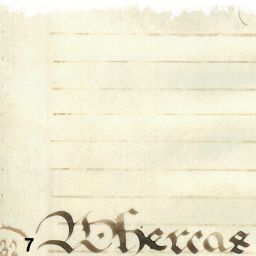 7 Whereas